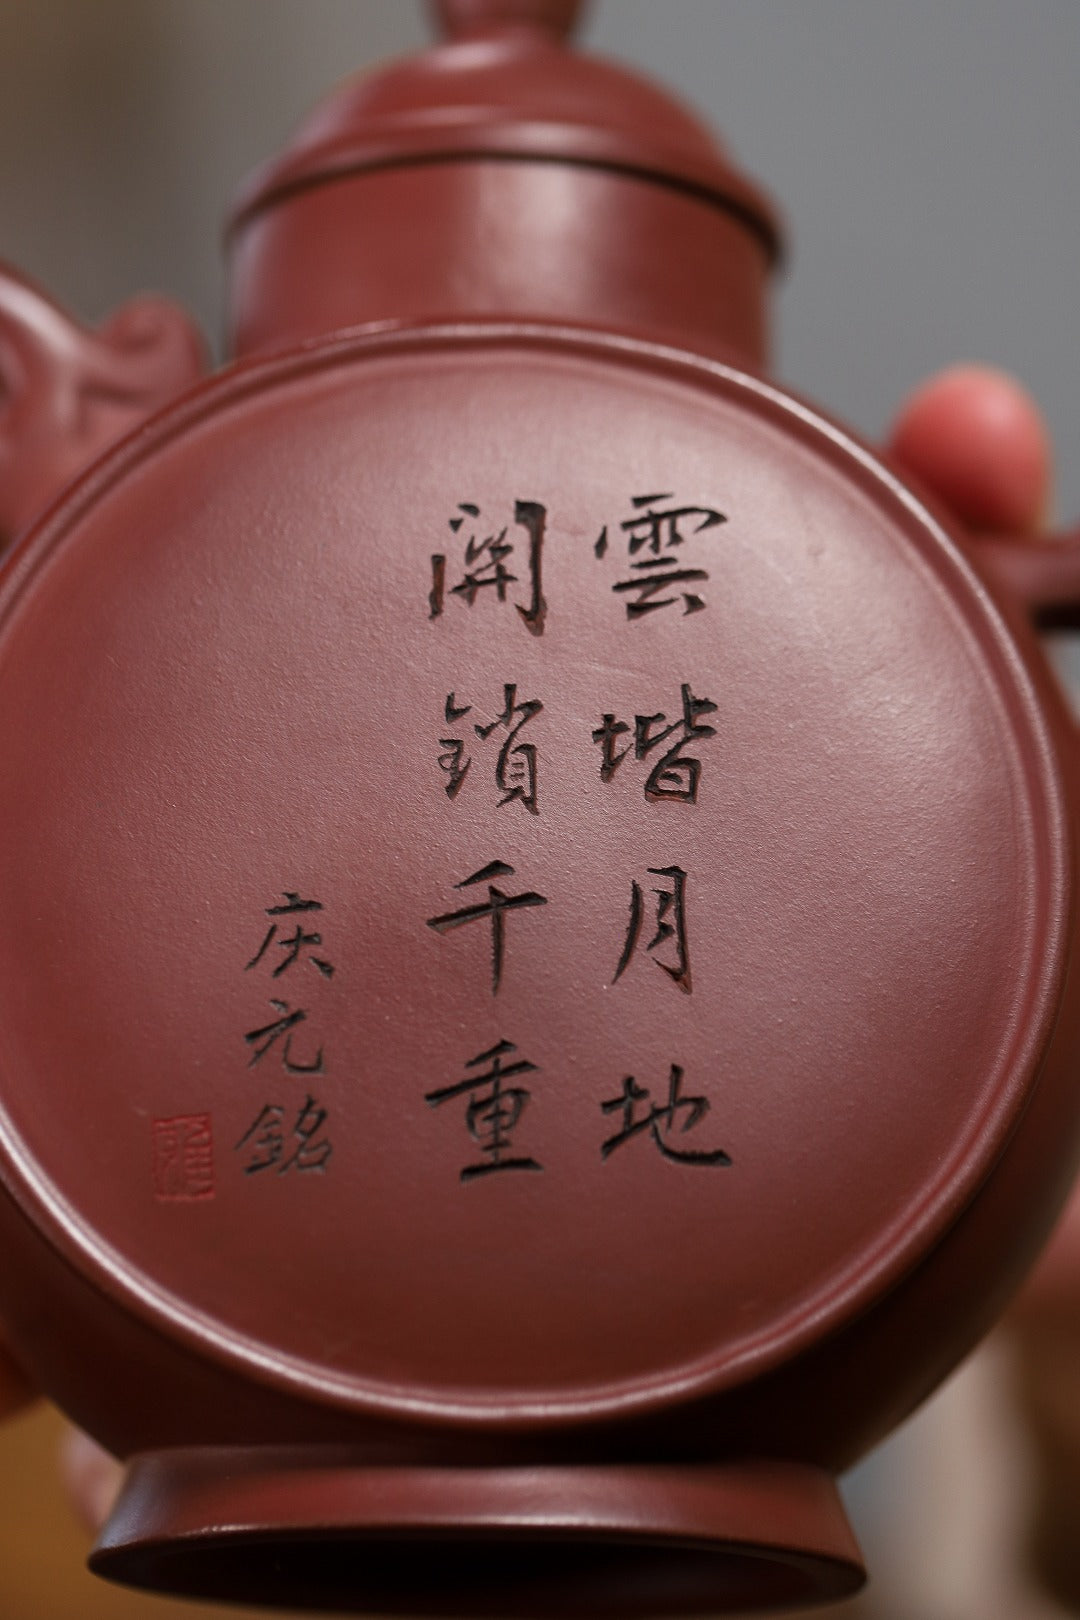 雲堦月地
関鎖千重
庆元銘